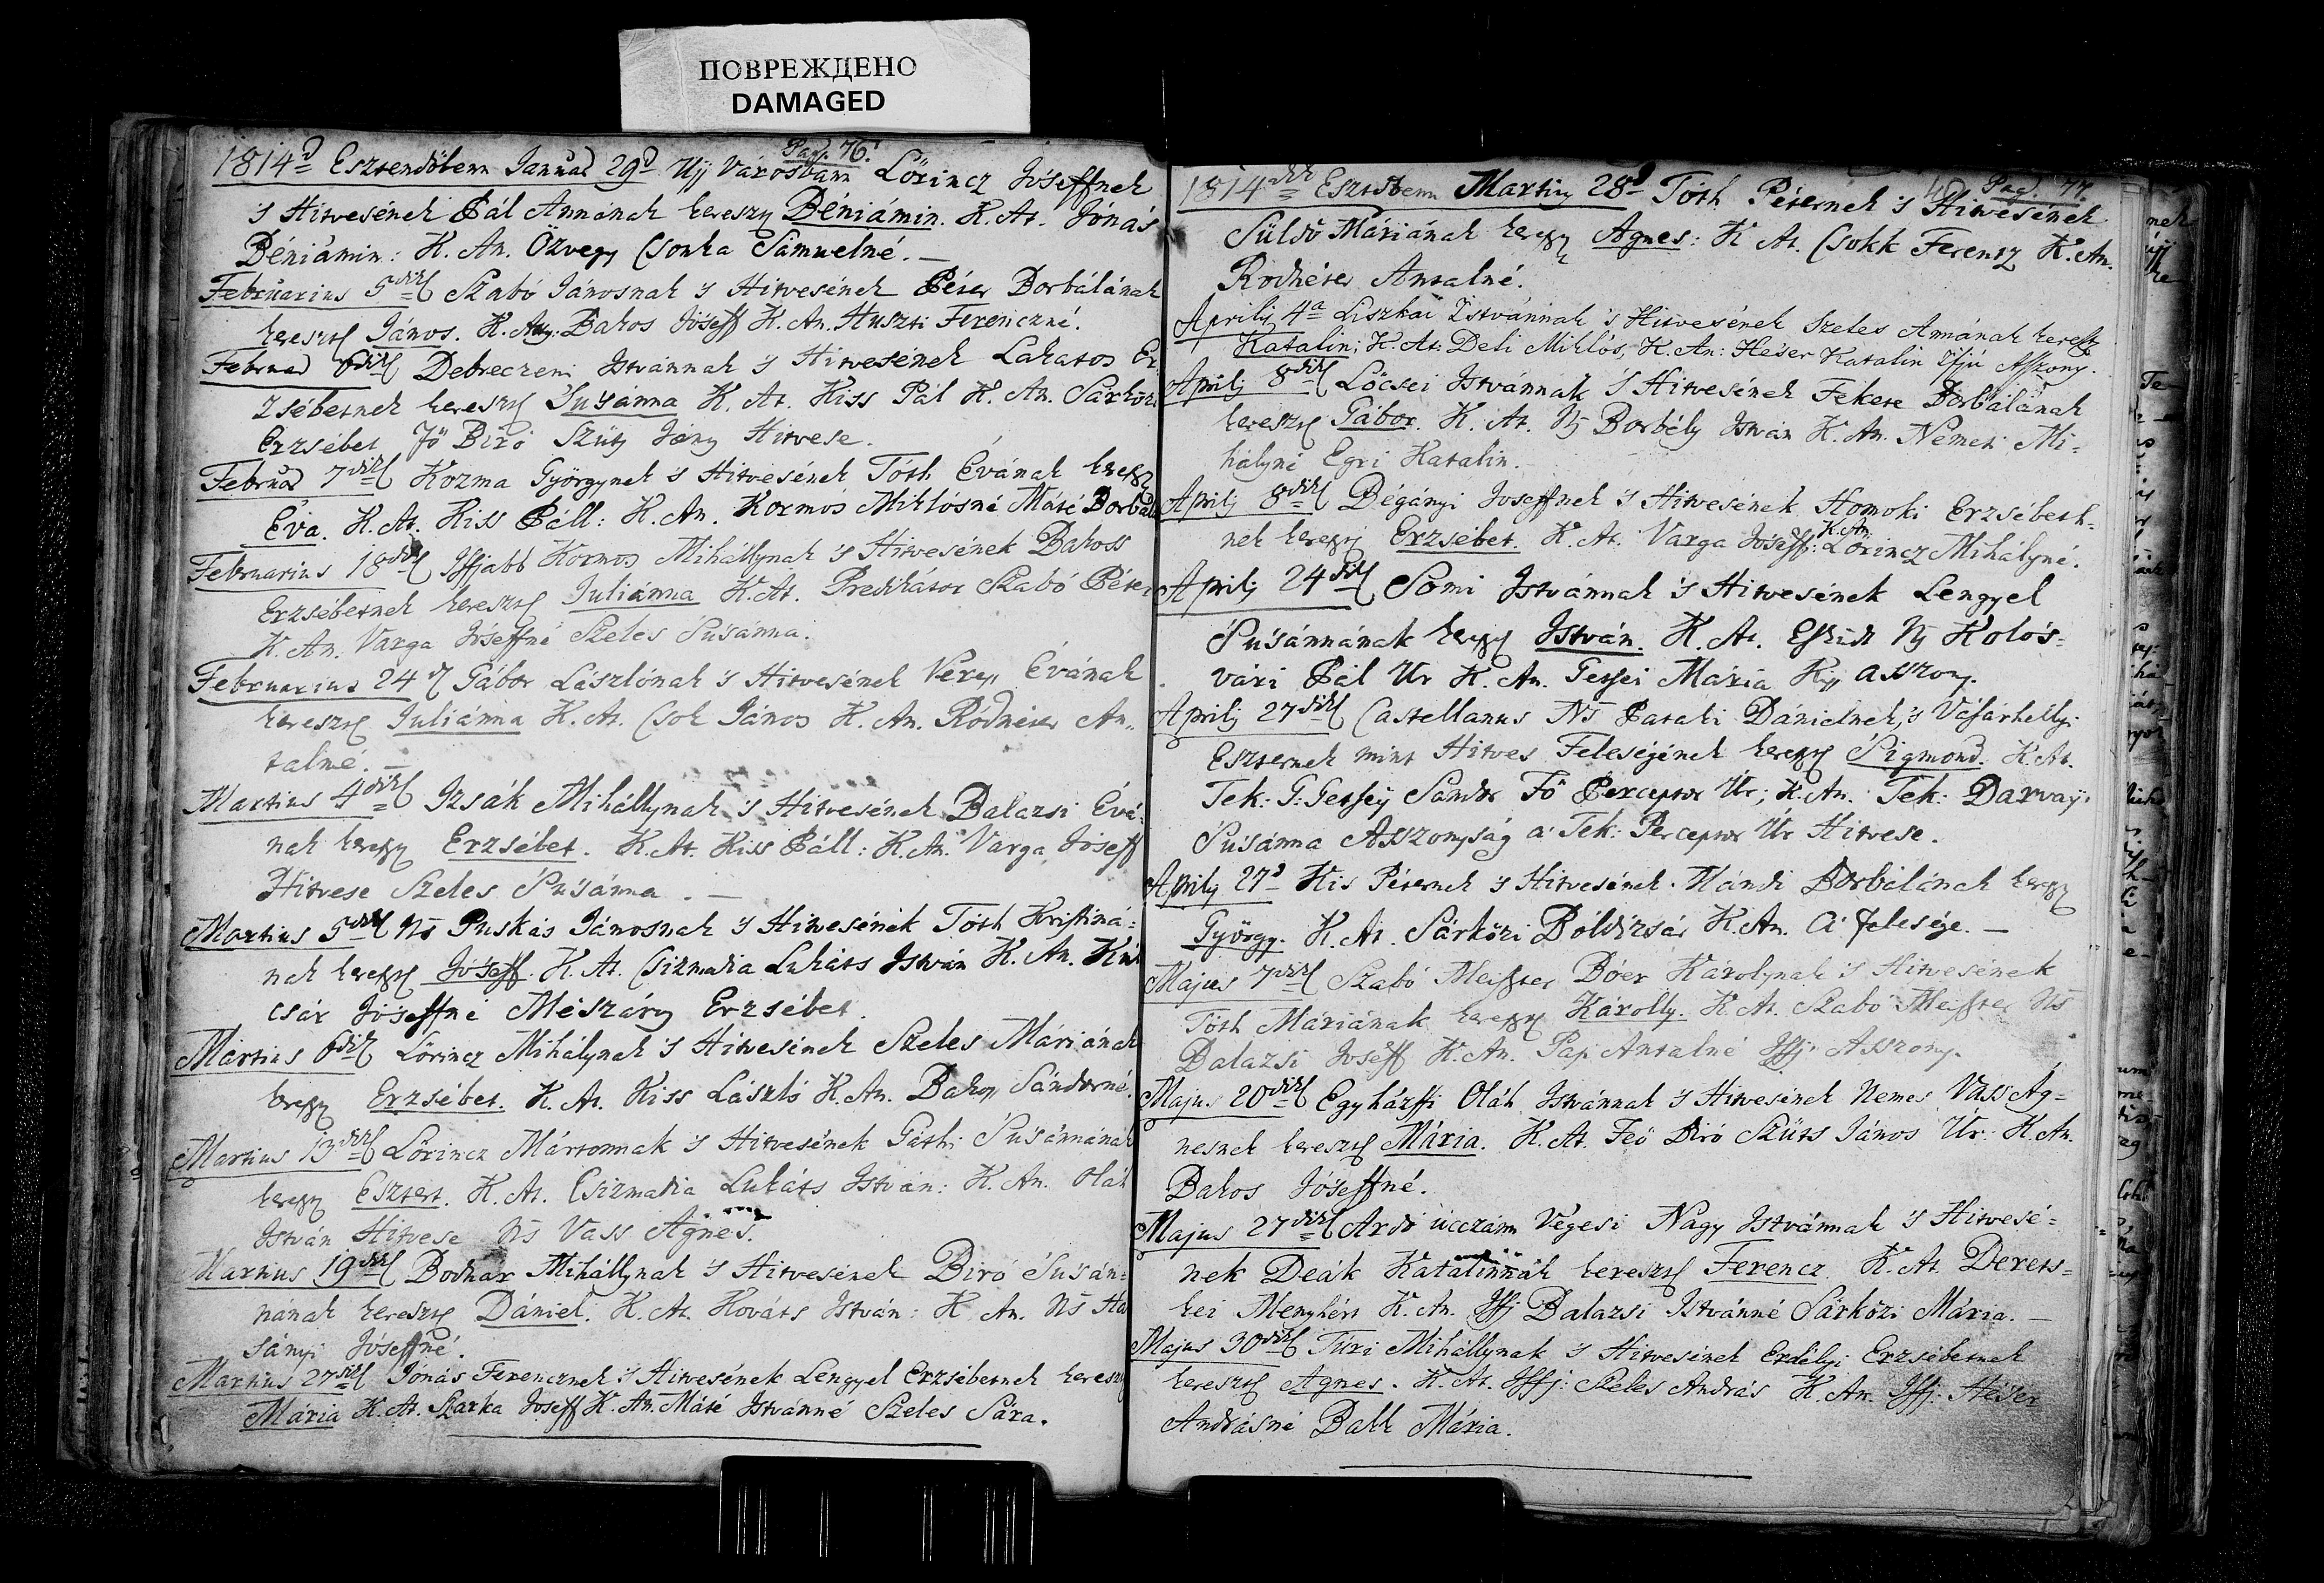 ПОВРЕЖДЕНО
DAMAGED
Pag. 76.
1814d Esztendőbenn Januar 29d Ujj Városbann Lőrincz Jóseffnek
's Hitvesének Pál Annának kereszt Béniámin. K. At. Jónás
Béniámin: K. An. Özvegy Csonka Sámuelné. —
Februarius 5dik Szabó Jánosnak 's Hitvesének Péter Borbálának
kereszt János. K. At. Bakos Jóseff K. An. Huszti Ferenczné.
Februar 6dik Debreczeni Istvánnak 's Hitvesének Lakatos Er
zsébetnek kereszt Susánna K. At. Kiss Pál K. An. Sárközi
Erzsébet Fő Biró Szüts János Hitvese.
Februar 7dik Kozma Györgynek 's Hitvesének Tóth Évának kereszt
Éva. K. At. Kiss Páll: K. An. Kormos Miklósné Máté Borbála
Februarius 18dik Iffjabb Kormos Mihállynak 's Hitvesének Bakoss
Erzsébetnek kereszt Juliánna K. At. Predikátor Szabó Péter
K. An. Varga Jóseffné Szeles Susánna.
Februarius 24d Gábor Lászlónak 's Hitvesének Veres Évának
kereszt Juliánna K. At. Csok János K. An. Ródnéter An-
talné. —
Martius 4dik Izsák Mihállynak 's Hitvesének Balazsi Évá-
nak kereszt Erzsébet. K. At. Kiss Páll: K. An. Varga Jóseff
Hitvese Szeles Susánna. —
Martius 5dik Ns Puskás Jánosnak 's Hitvesének Tóth Kristiná-
nak kereszt Jóseff. K. At. Csizmadia Lukáts István K. An. Kin
csár Jóseffné Mészáros Erzsébet.
Martius 6dik Lőrincz Mihálynak 's Hitvesének Szeles Máriának
kereszt Erzsébet. K. At. Kiss László K. An. Bakos Sándorné.
Martius 13dik Lőrincz Mártonnak 's Hitvesének Gáthi Susánnának
kereszt Esztert. K. At. Csizmadia Lukáts István: K. An. Oláh
István Hitvese Ns Vass Ágnes.
Martius 19dik Bodnár Mihállynak 's Hitvesének Biró Susán-
nának kereszt Dániel. K. At. Kováts István: K. An. Ns Ha
sányi Jóseffné.
Martius 27dik Jónás Ferencznek 's Hitvesének Lengyel Erzsébetnek kereszt
Mária K. At. Szarka Joseff K. An. Máté Istvánné Szeles Sára.
Pag. 77.
1814dik Esztbenn Martius 28d Tóth Péternek 's Hitvesének
Süldő Máriának kereszt Agnes: K. At. Csokk Ferentz K. An.
Rodnéter Antalné.
Aprilis 4a Liszkai Istvánnak 's Hitvesének Szeles Annának kereszt
Katalin; K. At: Deli Miklós, K. An: Héser Katalin Ifjú Asszony.
Aprilis 8dik Lőcsei Istvánnak 's Hitvesének Fekete Borbálának
kereszt Gábor. K. At. Ifj Borbély István K. An. Nemeti Mi-
hályné Egri Katalin.
Aprilis 8dik Dégányi Joseffnek 's Hitvesének Homoki Erzsébeth-
nek kereszt Erzsébet. K. At. Varga Jóseff: K. An. Lőrincz Mihályné.
Aprilis 24dik Somi Istvánnak 's Hitvesének Lengyel
Susánnának kereszt István. K. At. Esküdt Ns Kolos-
vári Pál Ur K. An. Getsei Mária Kis asszony.
Aprilis 27dik Castellanus Ns Pataki Dánielnek, 's Vásárhellyi
Eszternek mint Hitves Feleségének kereszt Sigmond. K. At.
Tek: G: Getsey Sándor Fő Perceptor Ur; K. An. Tek: Darvay
Susánna Asszonyság a' Tek: Perceptor Ur Hitvese.
Aprilis 27d Kis Péternek 's Hitvesének Mándi Borbálának kereszt
György. K. At. Sárközi Boldizsár K. An. A' felesége. —
Majus 7dik Szabó Mester Bóer Károlynak 's Hitvesének
Tóth Máriának kereszt Károlly. K. At. Szabó Mester Ns
Balazsi Joseff K. An. Pap Antalné Iffj Asszony.
Majus 20dik Egyházfi Oláh Istvánnak 's Hitvesének Nemes Vass Ág-
nesnek kereszt Mária. K. At. Feő Biró Szüts János Úr. K. An.
Bakos Jóseffné.
Majus 27dik Ardó ucczánn Végesi Nagy Istvánnak 's Hitvesé-
nek Deák Katalinnak kereszt Ferencz. K. At. Derets-
kei Menyhért K. An. Iffj Balazsi Istvánné Sárközi Mária. —
Majus 30dik Túri Mihállynak 's Hitvesének Erdélyi Erzsébetnek
kereszt Agnes. K. At. Iffj: Szeles András K. An. Iffj: Héser
Andrásné Ball Mária.